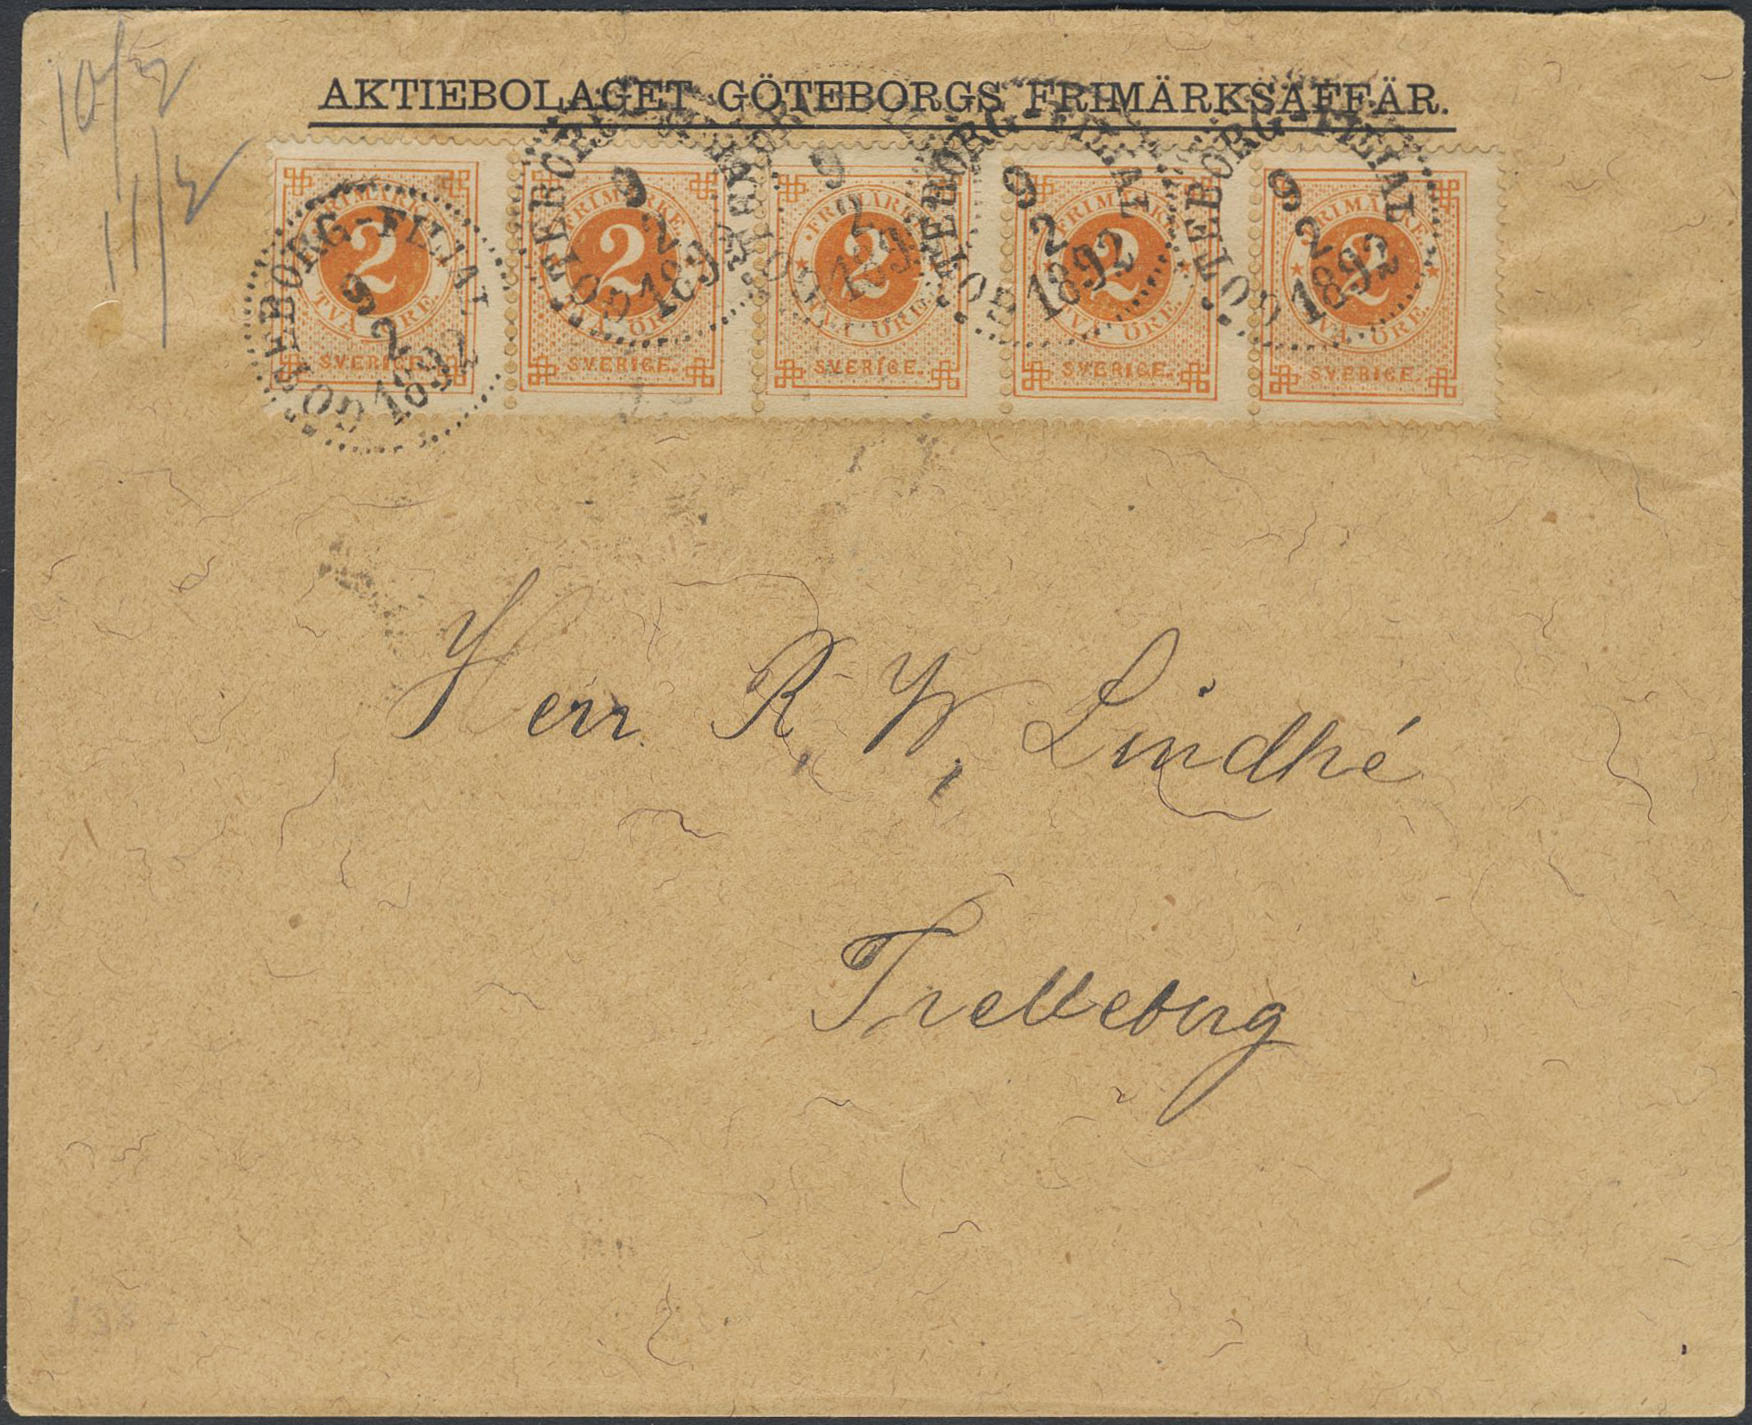 10/2
11/2
AKTIEBOLAGET GÖTEBORGS FRIMÄRKSAFFÄR.
FRIMÄRKE 2 TVÅ ÖRE. SVERIGE.
FRIMÄRKE 2 TVÅ ÖRE. SVERIGE.
FRIMÄRKE 2 TVÅ ÖRE. SVERIGE.
FRIMÄRKE 2 TVÅ ÖRE. SVERIGE.
FRIMÄRKE 2 TVÅ ÖRE. SVERIGE.
GÖTEBORG-FILIAL 9 2 1892
GÖTEBORG 9 2 189
GÖTEBORG 9 2 189
GÖTEBORG-FILIAL 9 2 1892
GÖTEBORG-FILIAL 9 2 1892
Herr R. W. Lindhé
Trelleborg